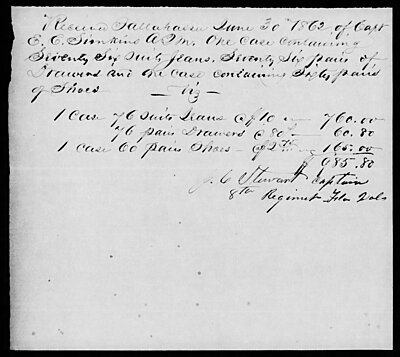 Received Tallahassee June 30th 1862 of Capt
E. E. Simkins A.Q.M. One Case Containing
Seventy Six Suits Jeans, Seventy Six pair of
Drawers and One Case containing Sixty pairs
of Shoes — viz —
1 Case 76 Suits Jeans @ $10 — 760.00
76 pairs Drawers @ 80c — 60.80
1 case 60 pairs Shoes — @ $2.75 165.00
$985.80
J. C. Stewart Captain
8th Regiment Fla Vols